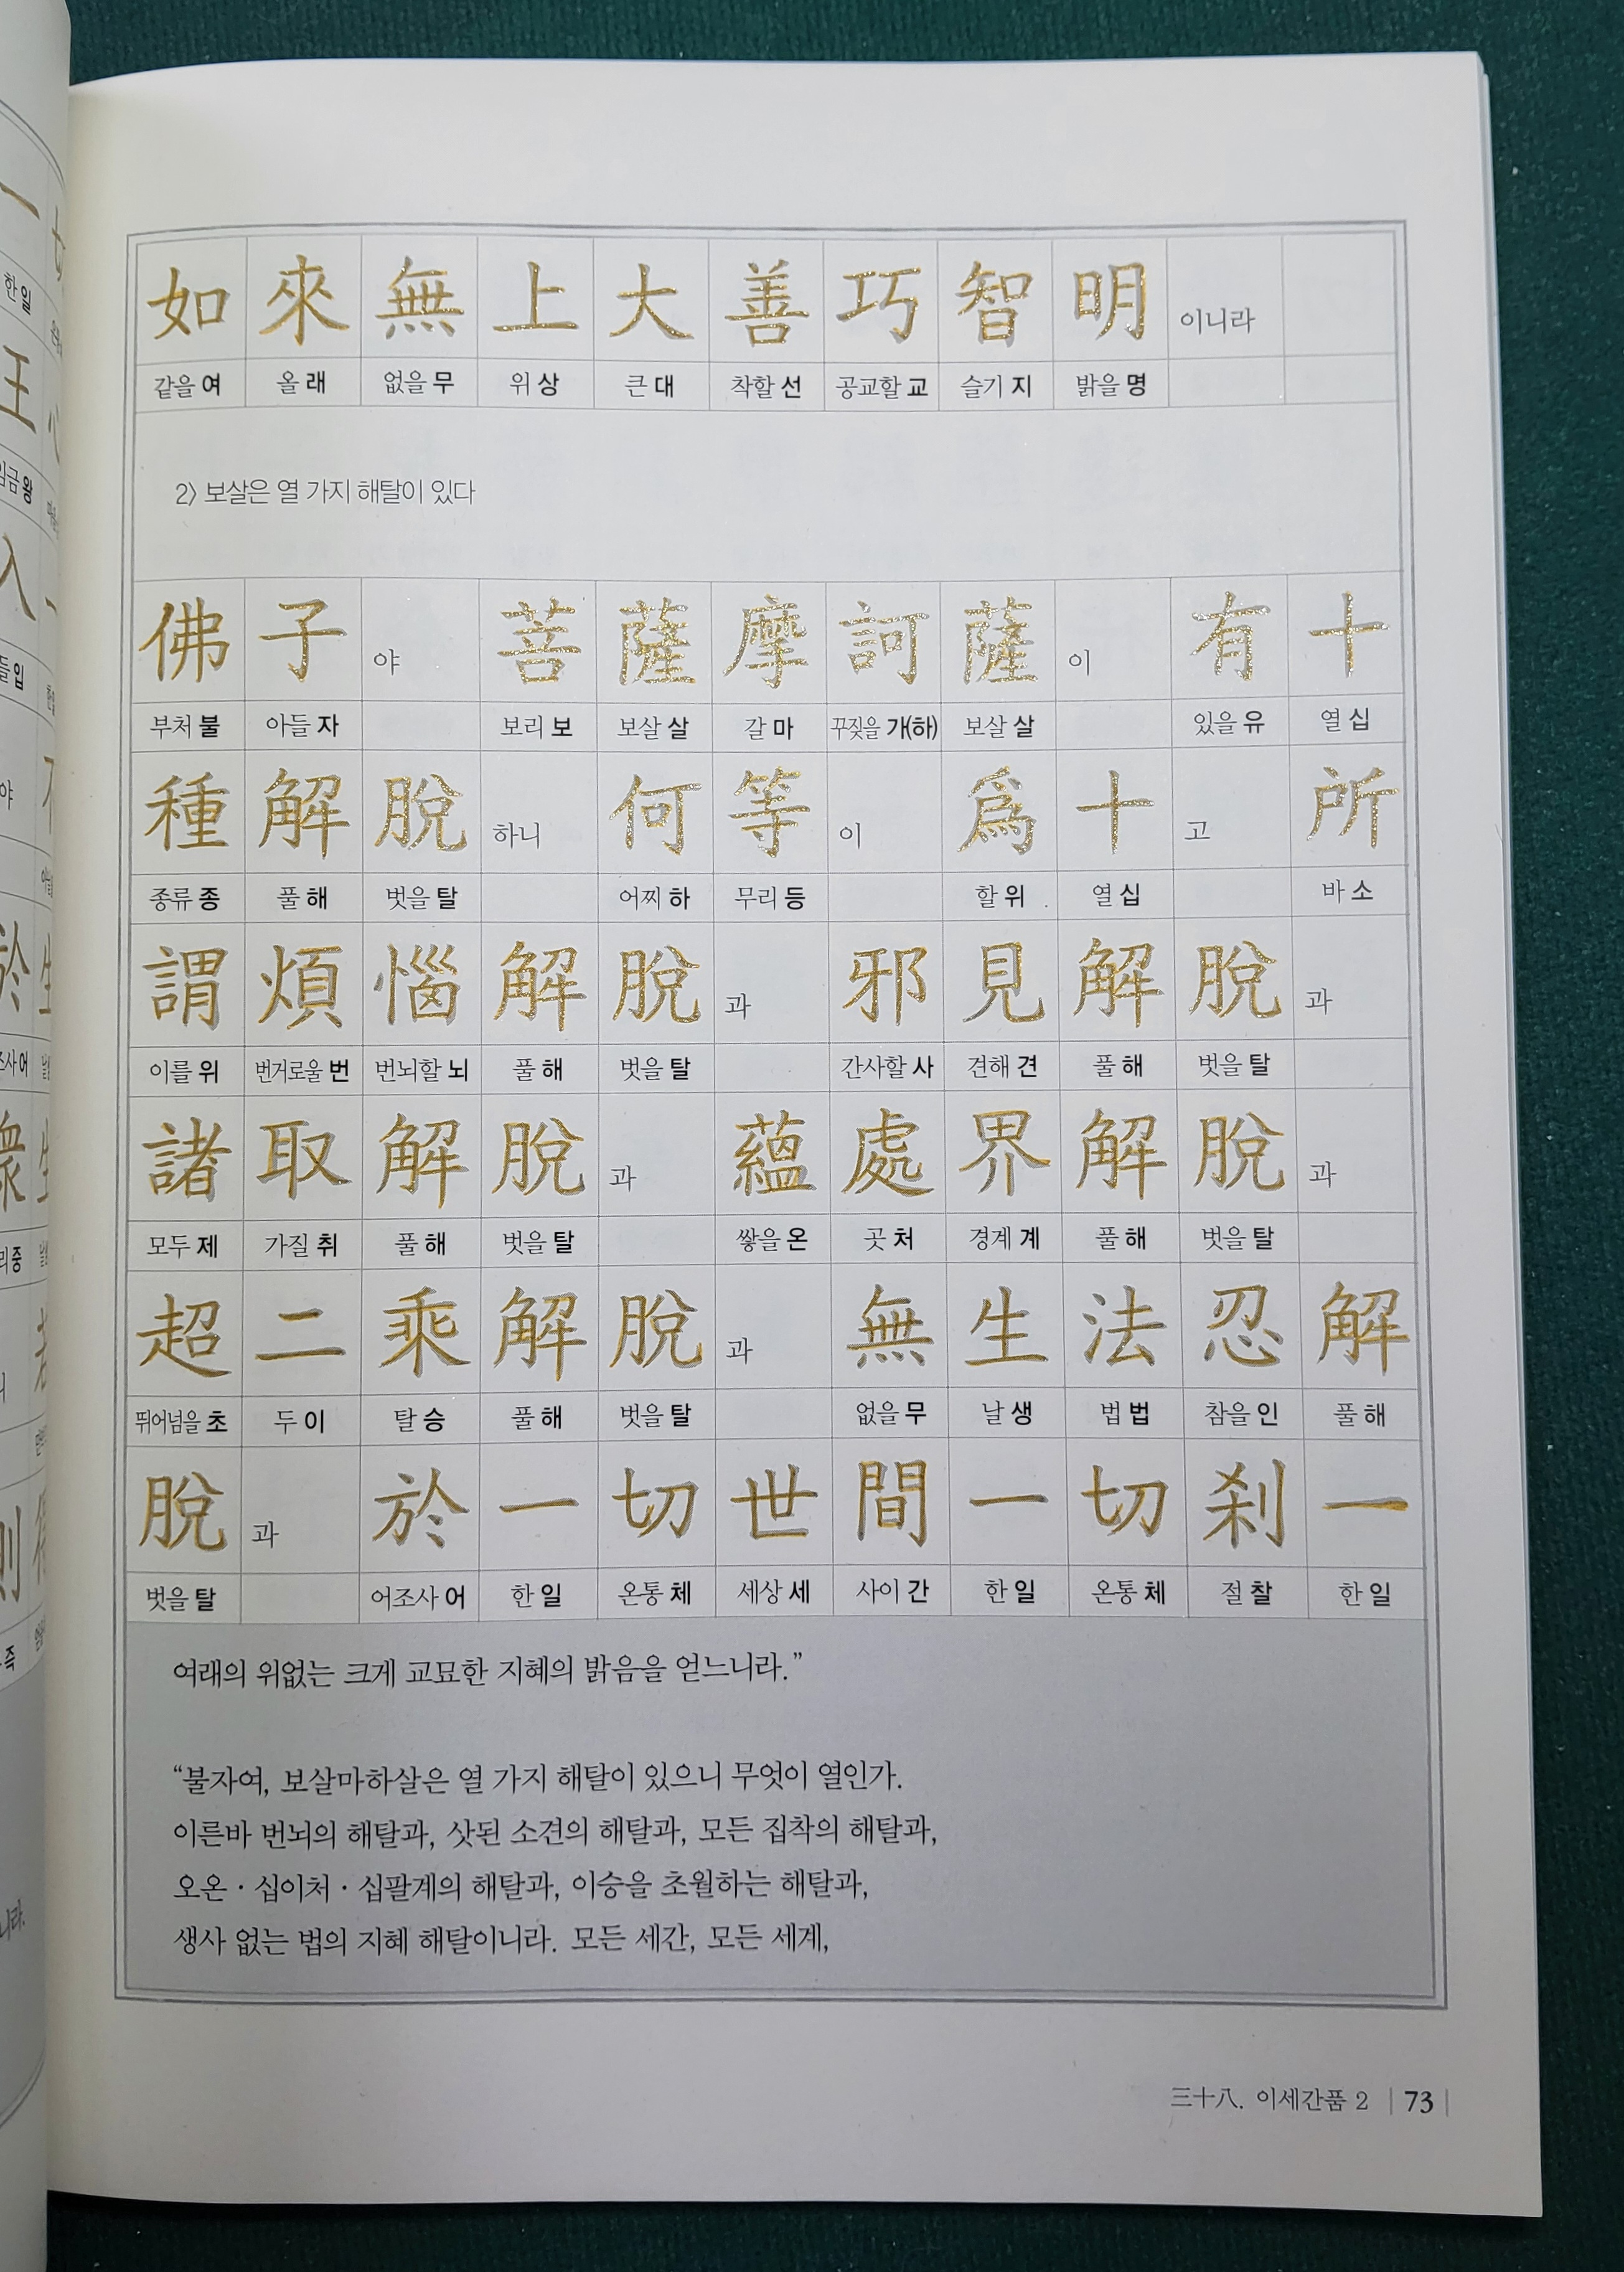 如 來 無 上 大 善 巧 智 明 이니라
같을 여 올 래 없을 무 위 상 큰 대 착할 선 공교할 교 슬기 지 밝을 명
2) 보살은 열 가지 해탈이 있다
佛 子 야 菩 薩 摩 訶 薩 이 有 十
부처 불 아들 자 보리 보 보살 살 갈 마 꾸짖을 가(하) 보살 살 있을 유 열 십
種 解 脫 하니 何 等 이 爲 十 고 所
종류 종 풀 해 벗을 탈 어찌 하 무리 등 할 위 열 십 바 소
謂 煩 惱 解 脫 과 邪 見 解 脫 과
이를 위 번거로울 번 번뇌할 뇌 풀 해 벗을 탈 간사할 사 견해 견 풀 해 벗을 탈
諸 取 解 脫 과 蘊 處 界 解 脫 과
모두 제 가질 취 풀 해 벗을 탈 쌓을 온 곳 처 경계 계 풀 해 벗을 탈
超 二 乘 解 脫 과 無 生 法 忍 解
뛰어넘을 초 두 이 탈 승 풀 해 벗을 탈 없을 무 날 생 법 법 참을 인 풀 해
脫 과 於 一 切 世 間 一 切 刹 一
벗을 탈 어조사 어 한 일 온통 체 세상 세 사이 간 한 일 온통 체 절 찰 한 일
여래의 위없는 크게 교묘한 지혜의 밝음을 얻느니라.”
“불자여, 보살마하살은 열 가지 해탈이 있으니 무엇이 열인가.
이른바 번뇌의 해탈과, 삿된 소견의 해탈과, 모든 집착의 해탈과,
오온·십이처·십팔계의 해탈과, 이승을 초월하는 해탈과,
생사 없는 법의 지혜 해탈이니라. 모든 세간, 모든 세계,
三十八. 이세간품 2 | 73 |